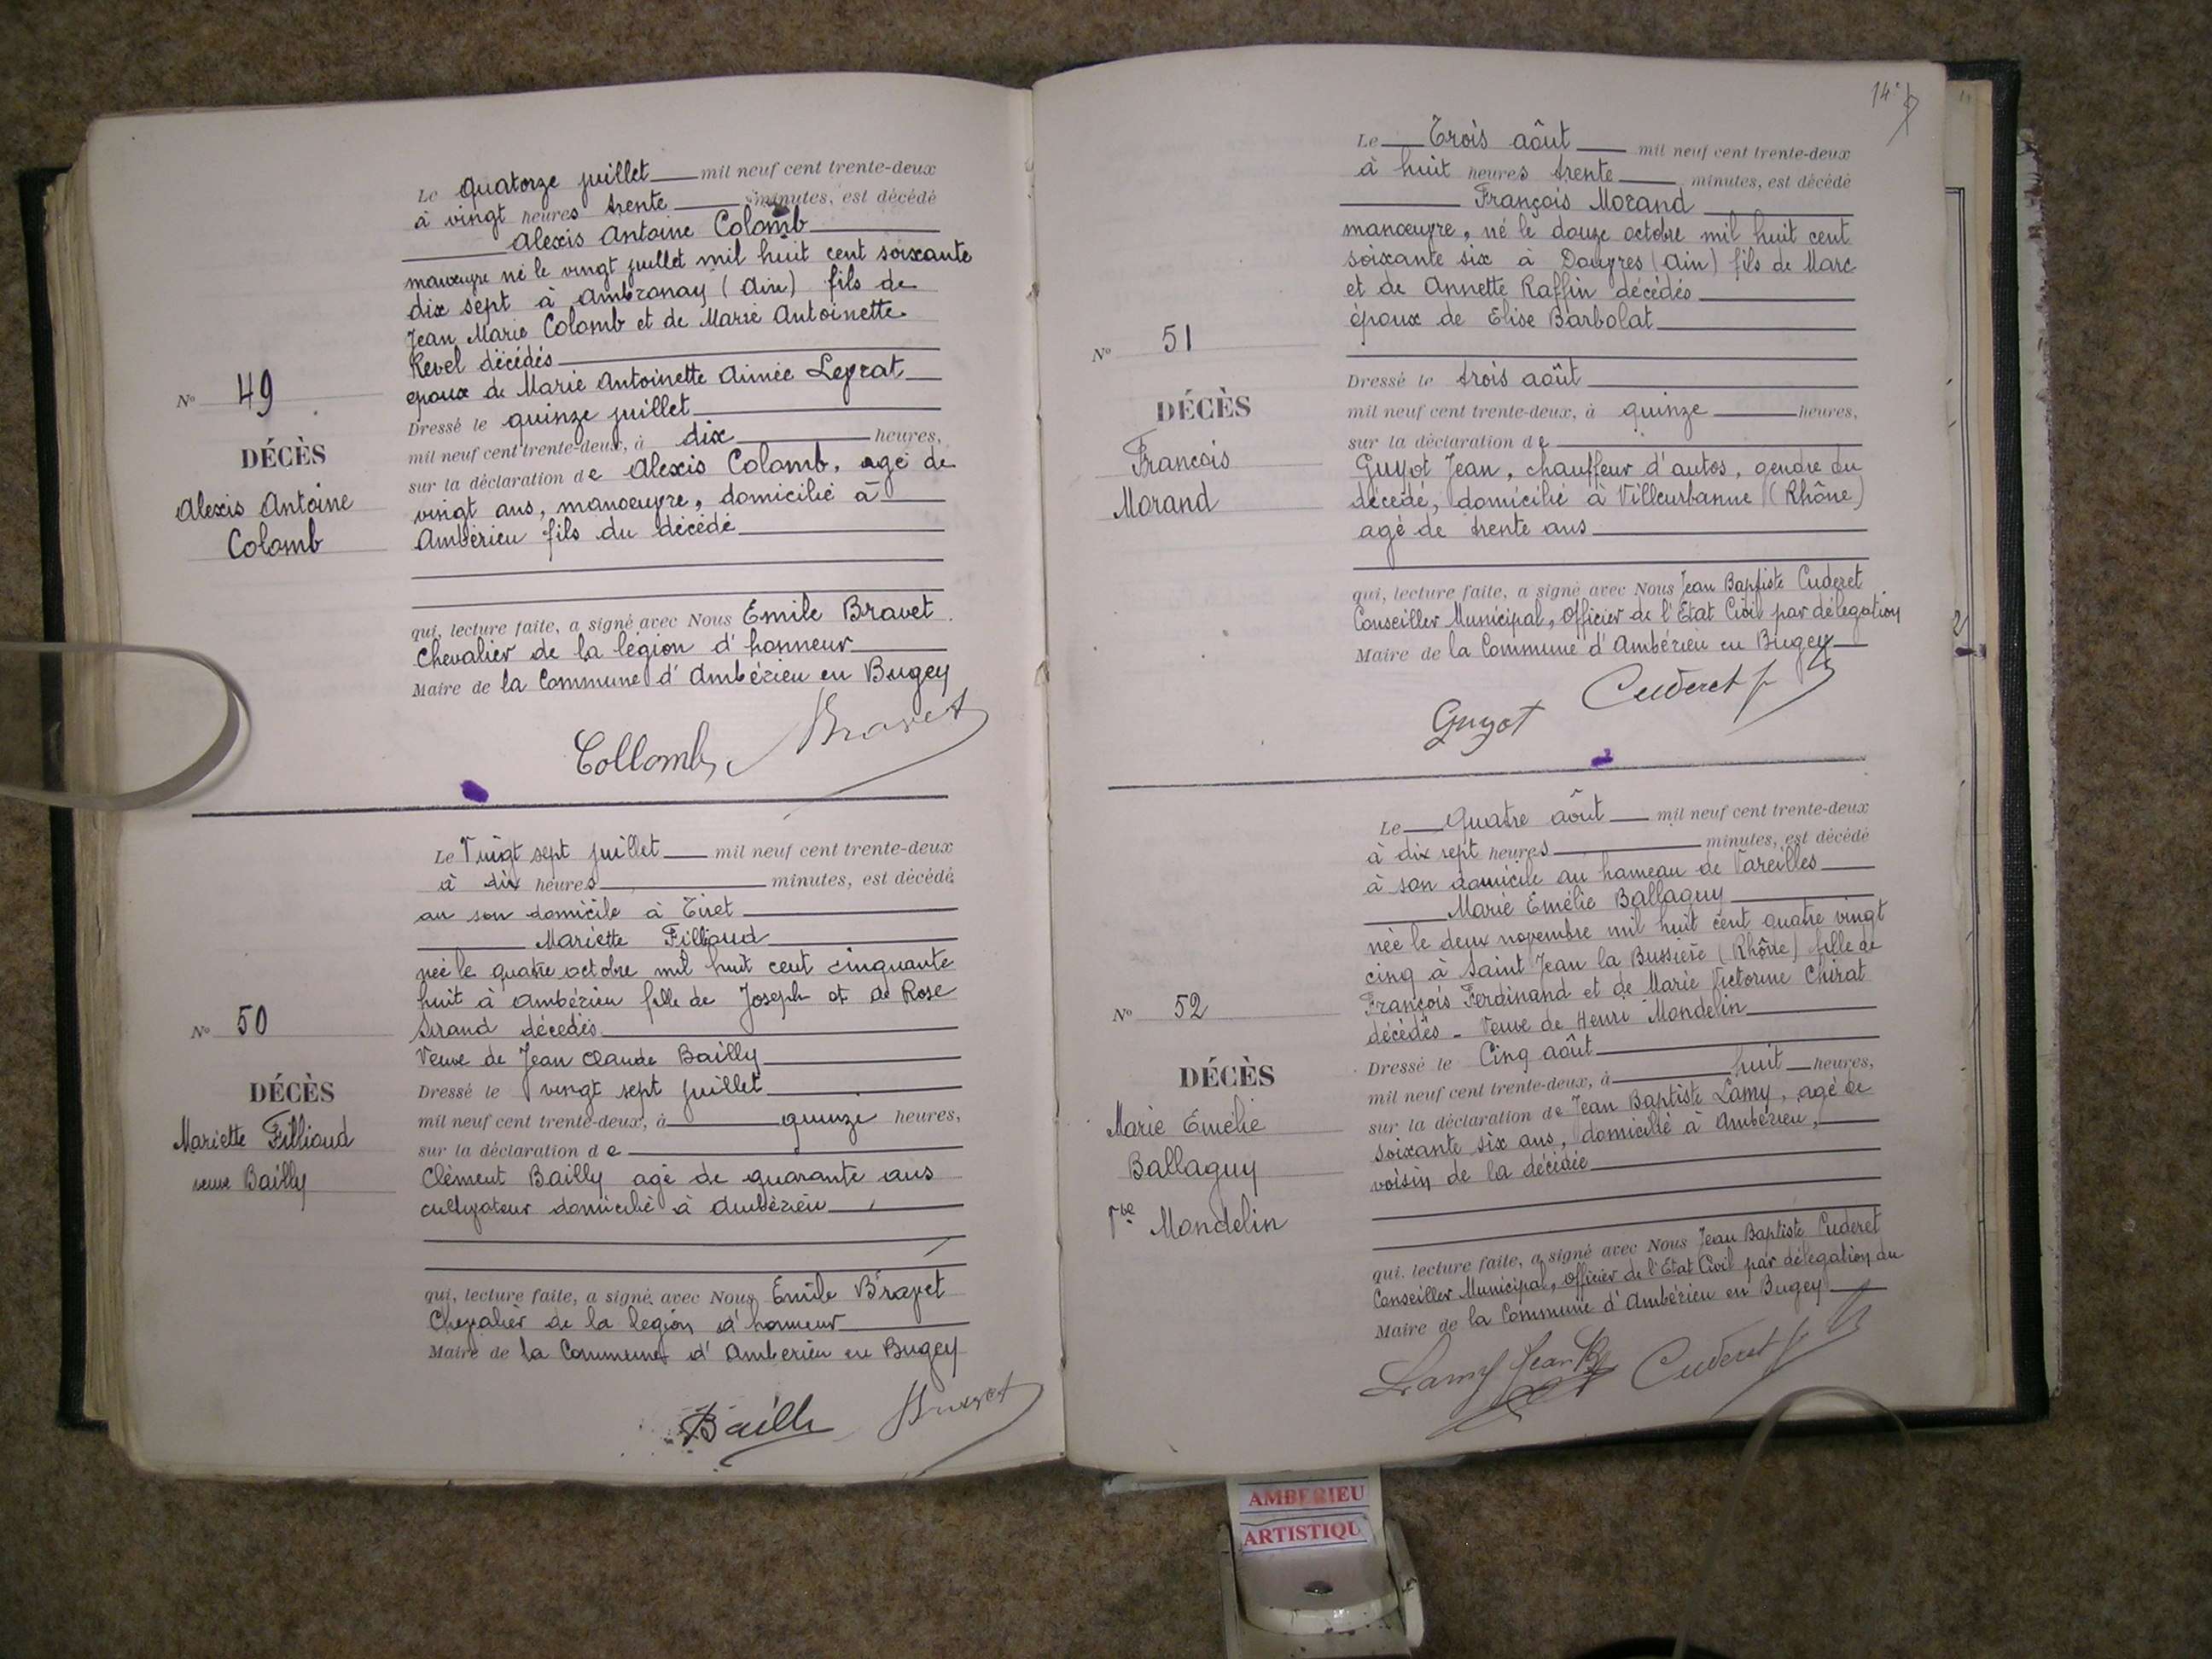 Le quatorze juillet mil neuf cent trente-deux
à vingt heures trente minutes, est décédé
Alexis Antoine Colomb
manœuvre né le vingt juillet mil huit cent soixante
dix sept à Ambronay (Ain) fils de
Jean Marie Colomb et de Marie Antoinette
Revel décédés
époux de Marie Antoinette Aimée Leprat
Dressé le quinze juillet
mil neuf cent trente-deux, à dix heures,
sur la déclaration de Alexis Colomb, agé de
vingt ans, manoeuvre, domicilié à
Ambérieu fils du décédé
qui, lecture faite, a signé avec Nous Emile Bravet
Chevalier de la légion d'honneur
Maire de la Commune d'Ambérieu en Bugey
Collomb Bravet
N° 49
DÉCÈS
Alexis Antoine
Colomb
Le Vingt sept juillet mil neuf cent trente-deux
à dix heures minutes, est décédé
en son domicile à Tiret
Mariette Filliaud
née le quatre octobre mil huit cent cinquante
huit à Ambérieu fille de Joseph et de Rose
Sirand décédés
Veuve de Jean Claude Bailly
Dressé le vingt sept juillet
mil neuf cent trente-deux, à quinze heures,
sur la déclaration de
Clément Bailly agé de quarante ans
cultivateur domicilié à Ambérieu
qui, lecture faite, a signé avec Nous Emile Bravet
Chevalier de la légion d'honneur
Maire de la Commune d'Ambérieu en Bugey
Bailly Bravet
N° 50
DÉCÈS
Mariette Filliaud
veuve Bailly
14
Le Trois aôut mil neuf cent trente-deux
à huit heures trente minutes, est décédé
François Morand
manœuvre, né le douze octobre mil huit cent
soixante six à Douvres (Ain) fils de Marc
et de Annette Raffin décédés
époux de Elise Barbolat
Dressé le trois août
mil neuf cent trente-deux, à quinze heures,
sur la déclaration de
Guyot Jean, chauffeur d'autos, gendre du
décédé, domicilié à Villeurbanne (Rhône)
agé de trente ans
qui, lecture faite, a signé avec Nous Jean Baptiste Cuderet
Conseiller Municipal, Officier de l'Etat Civil par délégation
Maire de la Commune d'Ambérieu en Bugey
Guyot Cuderet
N° 51
DÉCÈS
Francois
Morand
Le Quatre aôut mil neuf cent trente-deux
à dix sept heures minutes, est décédé
à son domicile au hameau de Vareilles
Marie Emélie Ballaguy
née le deux novembre mil huit cent quatre vingt
cinq à Saint Jean la Bussière (Rhône) fille de
François Ferdinand et de Marie Victorine Chirat
décédés - Veuve de Henri Mondelin
Dressé le Cinq aôut
mil neuf cent trente-deux, à huit heures,
sur la déclaration de Jean Baptiste Lamy, agé de
soixante six ans, domicilié à Ambérieu,
voisin de la décédée
qui, lecture faite, a signé avec Nous Jean Baptiste Cuderet
Conseiller Municipal, Officier de l'Etat Civil par délégation du
Maire de la Commune d'Ambérieu en Bugey
Lamy Jean B Cuderet
N° 52
DÉCÈS
Marie Emélie
Ballaguy
Vve Mondelin
AMBERIEU
ARTISTIQU